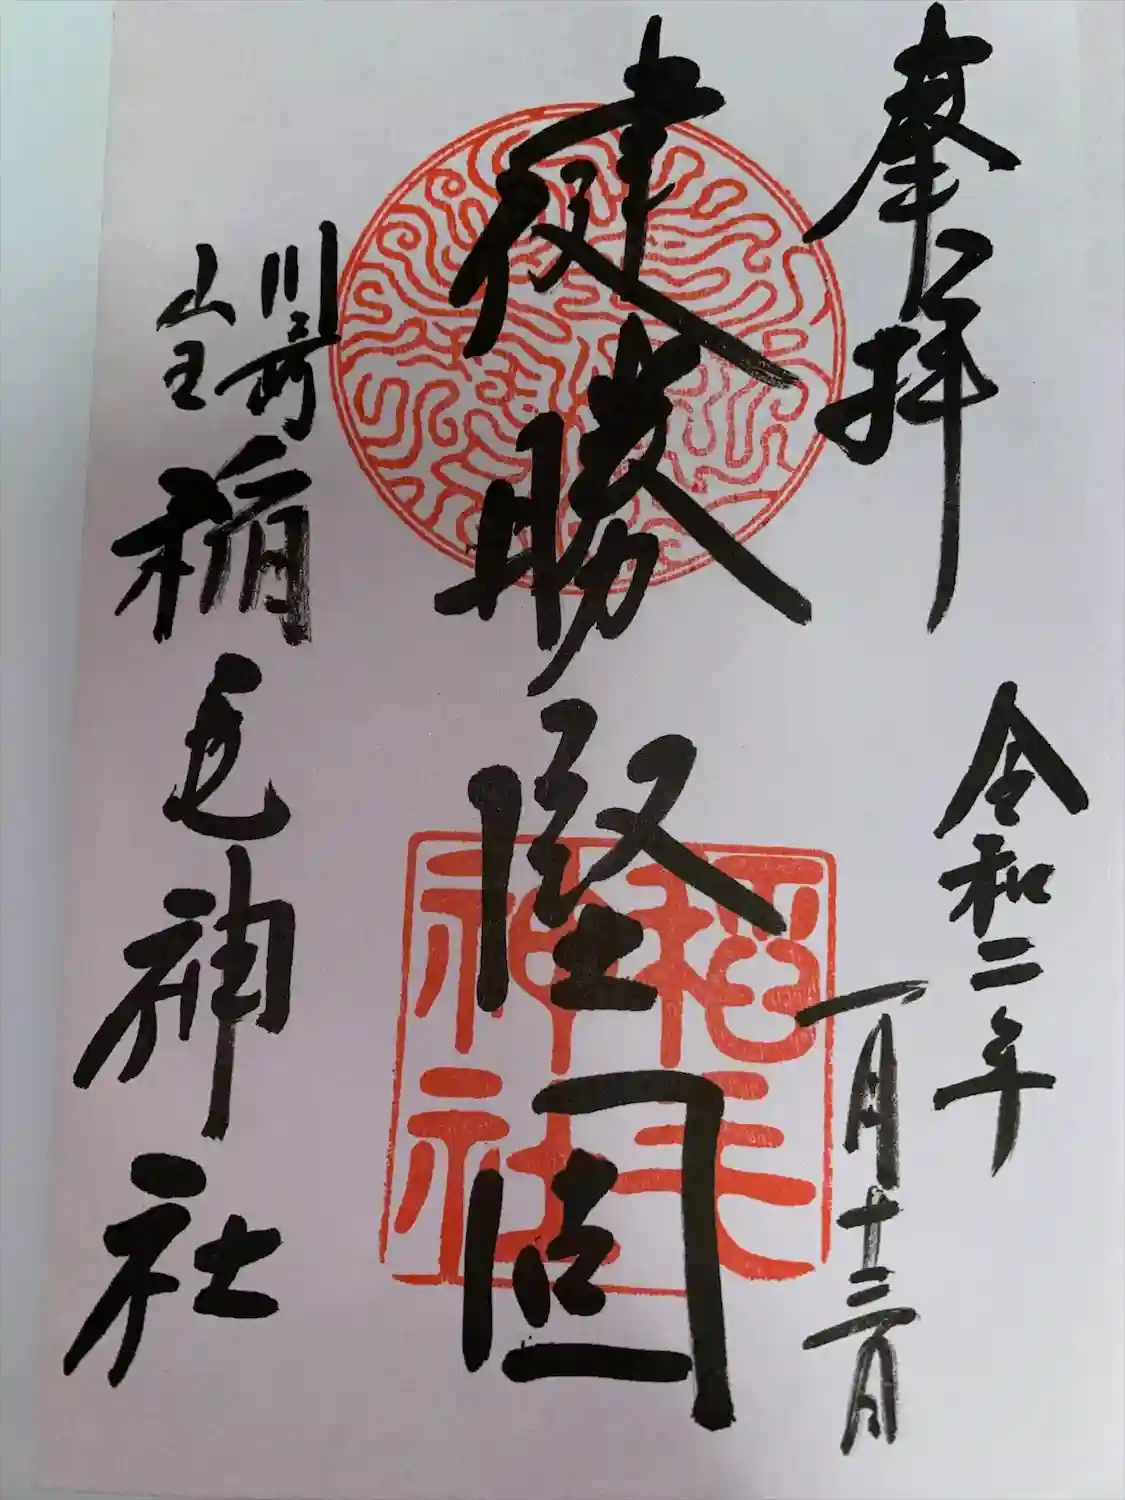 奉拝
令和二年
一月十三日
健勝堅固
川崎
山王
稲毛神社
稻毛
神社